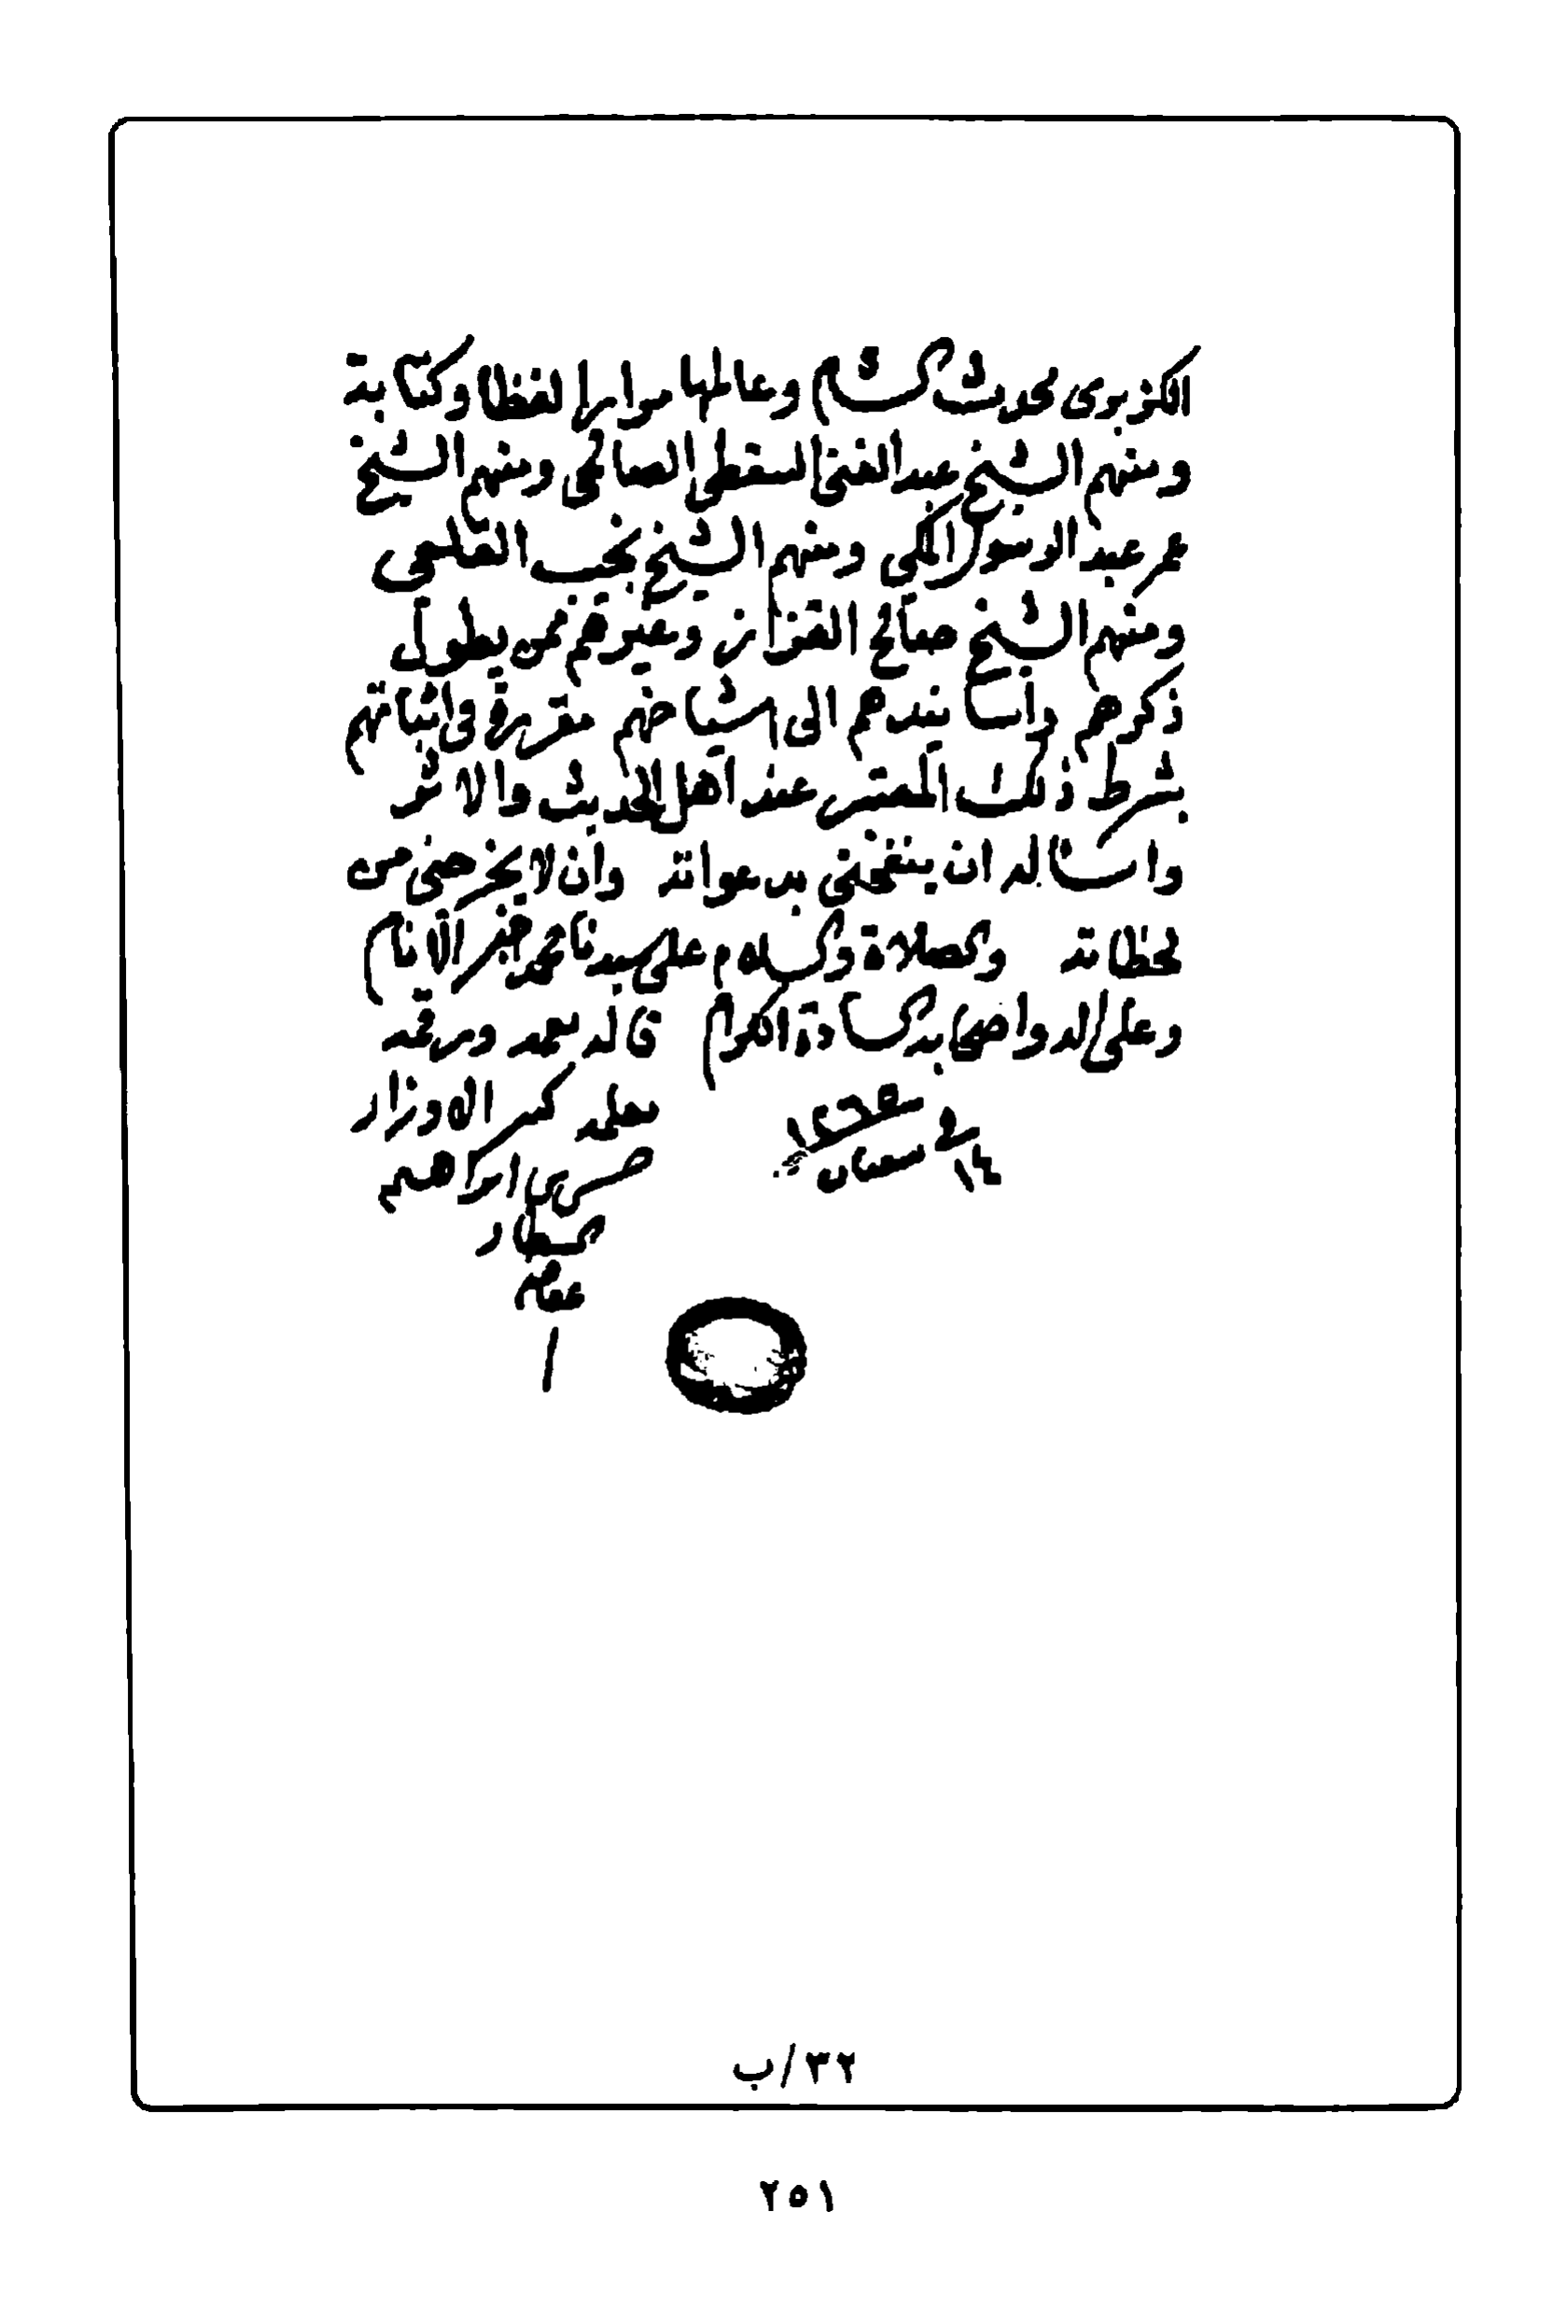 الكزبري محدث الشام وعالمها مرارا لفظا وكتابة
ومنهم الشيخ عبد الغني السقطي الصالحي ومنهم الشيخ
عمر عبد الرسول المكي ومنهم الشيخ نجيب القلعي
ومنهم الشيخ صالح القزاز وغيرهم ممن يطول
ذكرهم وأسانيدهم الى اشياخهم مقررة في اثباتهم
بشرط ذلك المعتبر عند أهل الحديث والاثر
واسأله ان ينفحني بدعواته وأن لا يخرجني من
لحظاته والصلاة والسلام على سيدنا محمد خير الأنام
وعلى اله واصحابه السادة الكرام قاله بفمه ورقمه
بقلمه كثير الاوزار
١٤ في شعبان
حسين ابراهيم
عفا عنه
٣٢/ب
٢٥١